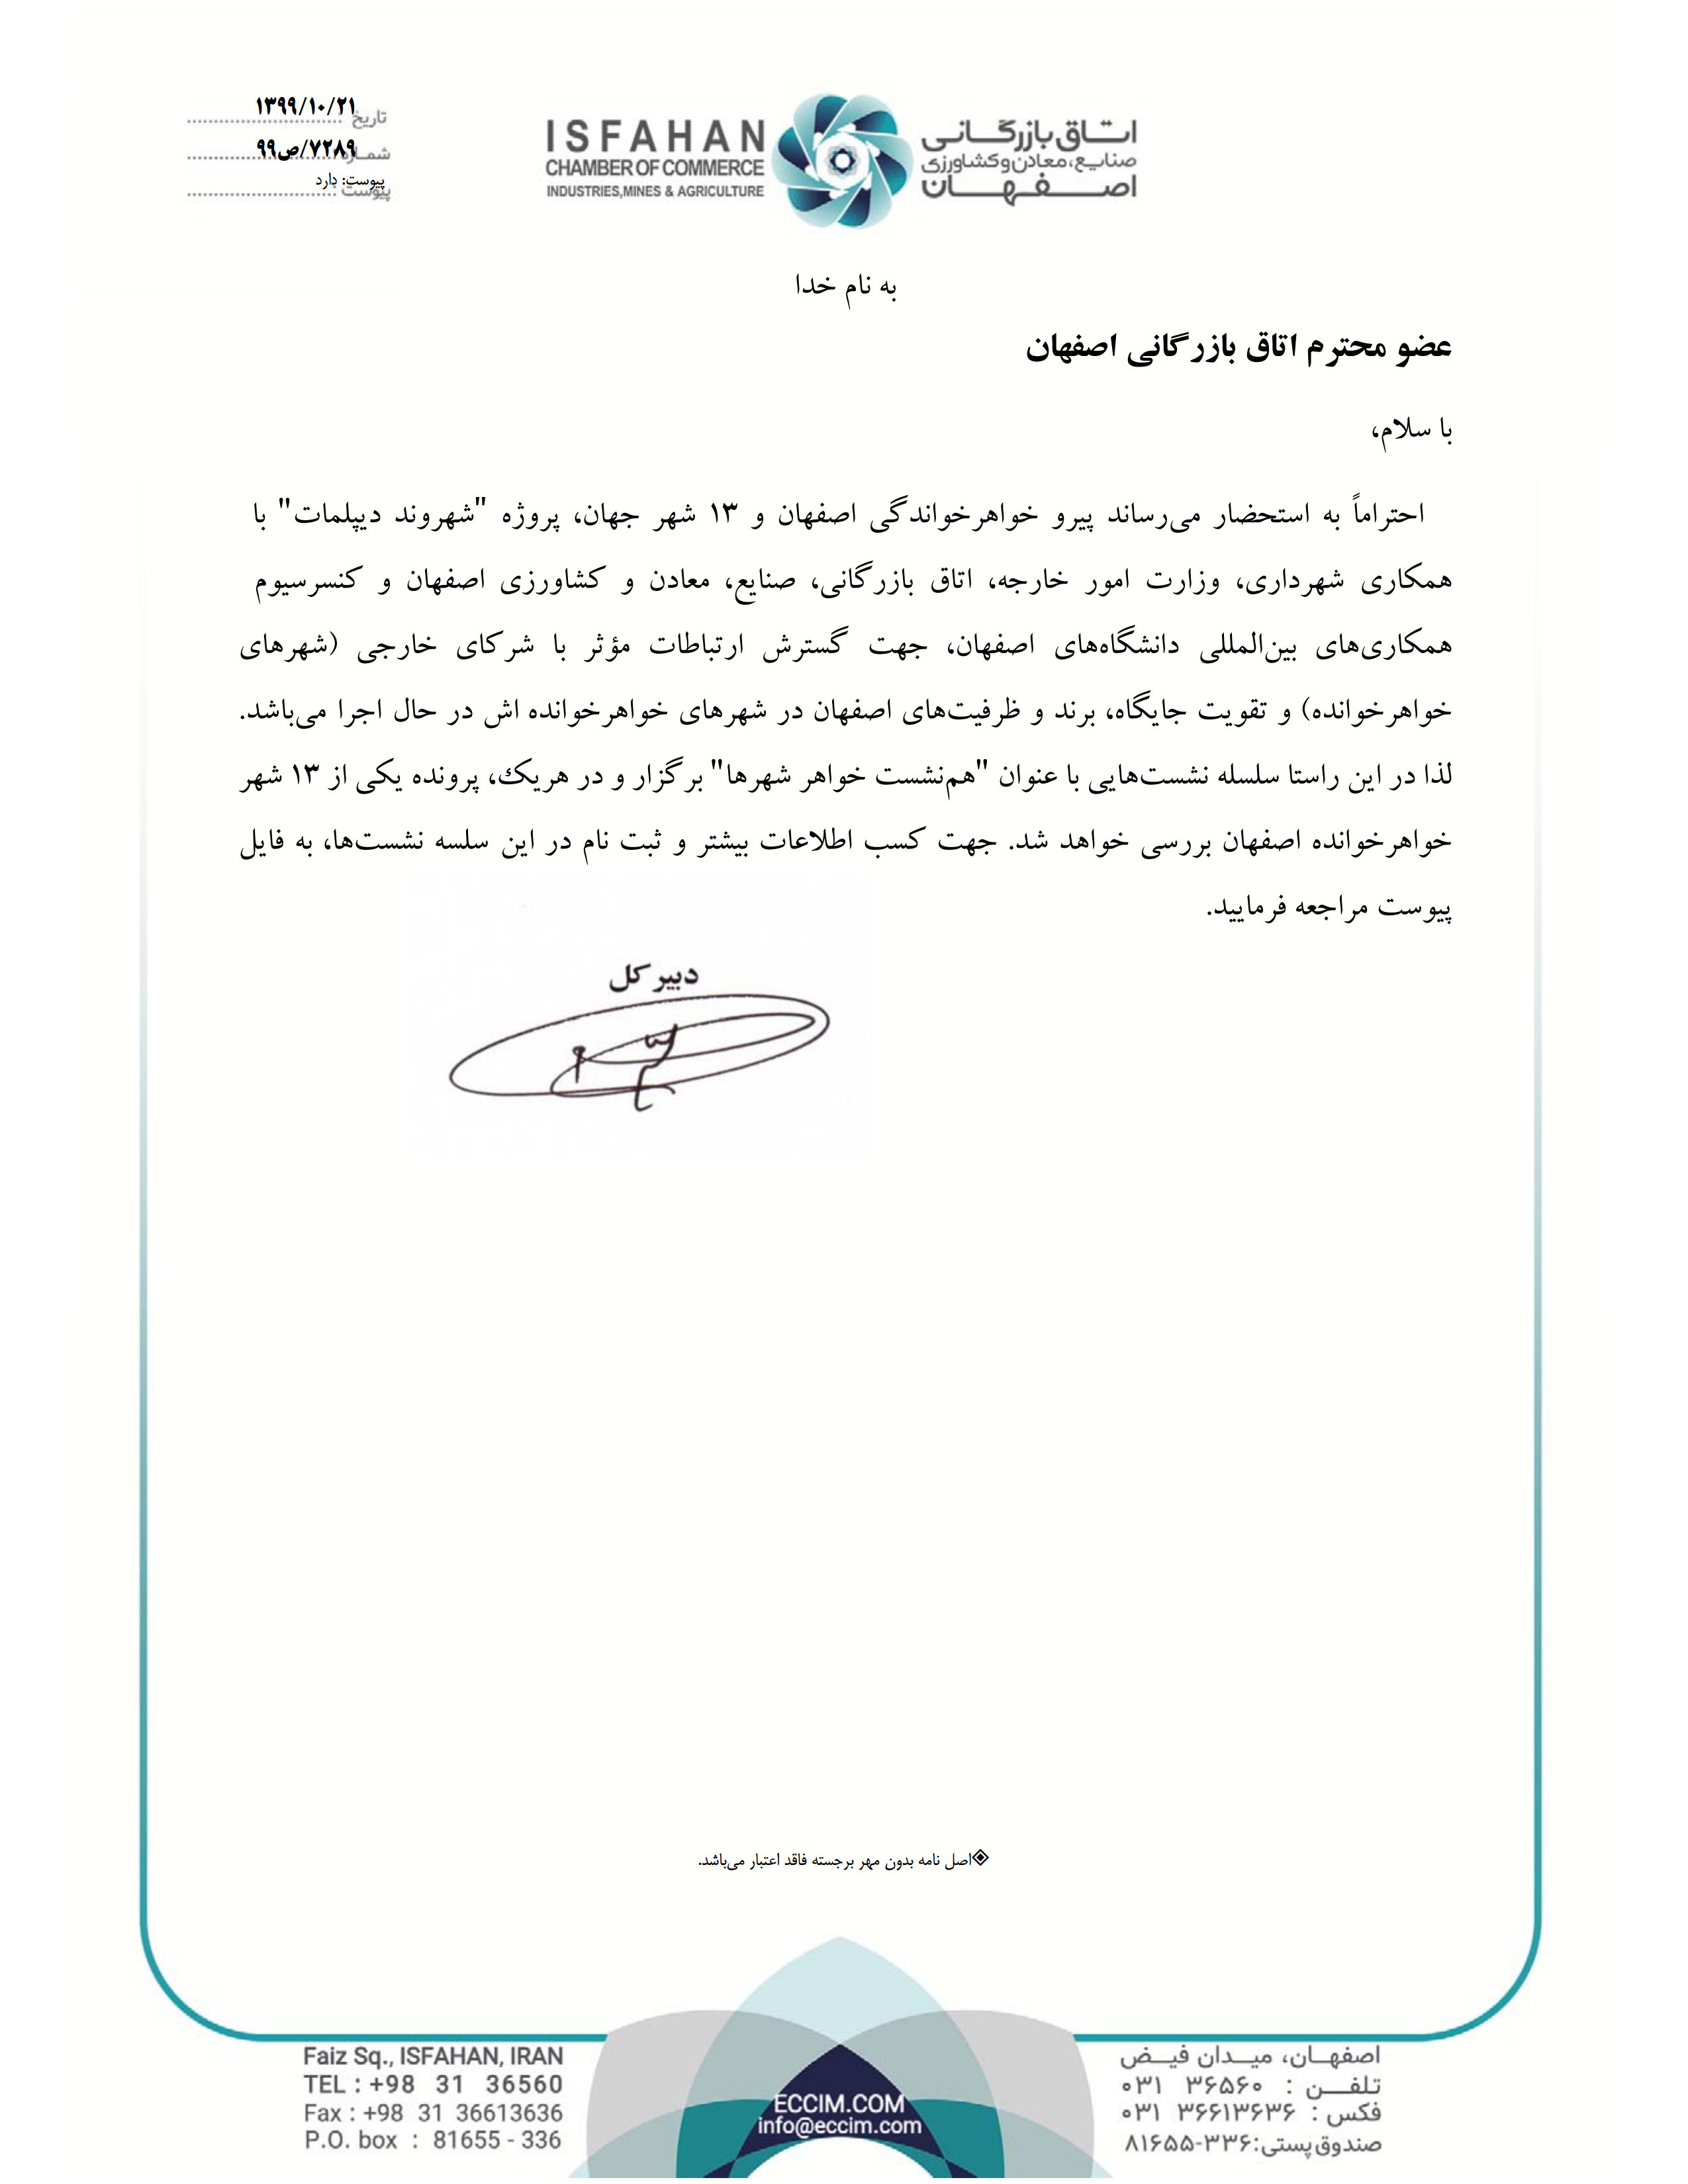 تاریخ ۱۳۹۹/۱۰/۲۱
۷۲۸۹/ص۹۹
پیوست: دارد
پیوست
ISFAHAN
CHAMBER OF COMMERCE
INDUSTRIES,MINES & AGRICULTURE
اتاق بازرگانی
صنایع، معادن و کشاورزی
اصفهان
به نام خدا
عضو محترم اتاق بازرگانی اصفهان
با سلام،
احتراماً به استحضار می‌رساند پیرو خواهرخواندگی اصفهان و ۱۳ شهر جهان، پروژه "شهروند دیپلمات" با
همکاری شهرداری، وزارت امور خارجه، اتاق بازرگانی، صنایع، معادن و کشاورزی اصفهان و کنسرسیوم
همکاری‌های بین‌المللی دانشگاه‌های اصفهان، جهت گسترش ارتباطات مؤثر با شرکای خارجی (شهرهای
خواهرخوانده) و تقویت جایگاه، برند و ظرفیت‌های اصفهان در شهرهای خواهرخوانده اش در حال اجرا می‌باشد.
لذا در این راستا سلسله نشست‌هایی با عنوان "هم‌نشست خواهر شهرها" برگزار و در هریک، پرونده یکی از ۱۳ شهر
خواهرخوانده اصفهان بررسی خواهد شد. جهت کسب اطلاعات بیشتر و ثبت نام در این سلسه نشست‌ها، به فایل
پیوست مراجعه فرمایید.
دبیر کل
اصل نامه بدون مهر برجسته فاقد اعتبار می‌باشد.
اصفهان، میدان فیض
تلفن : ۳۶۵۶۰ ۰۳۱
فکس : ۳۶۶۱۳۶۳۶ ۰۳۱
صندوق پستی: ۸۱۶۵۵-۳۳۶
ECCIM.COM
info@eccim.com
Faiz Sq., ISFAHAN, IRAN
TEL : +98 31 36560
Fax : +98 31 36613636
P.O. box : 81655 - 336